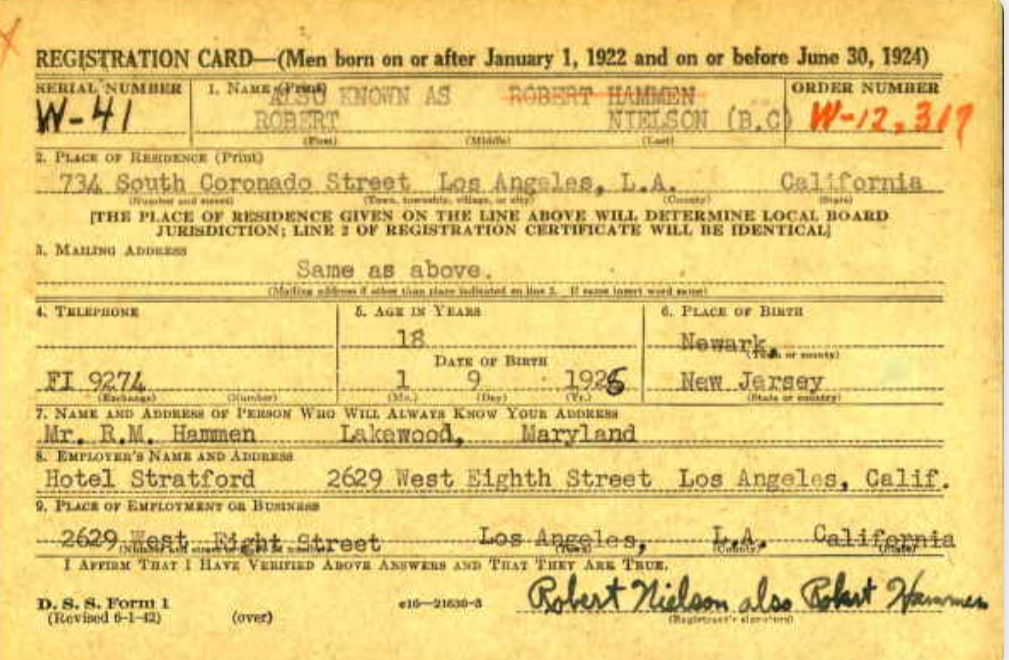 REGISTRATION CARD—(Men born on or after January 1, 1922 and on or before June 30, 1924)
SERIAL NUMBER 1. NAME (Print) ORDER NUMBER
ALSO KNOWN AS ROBERT HAMMEN
W-41 ROBERT NIELSON (B.C) W-12,317
(First) (Middle) (Last)
2. PLACE OF RESIDENCE (Print)
734 South Coronado Street Los Angeles, L.A. California
(Number and street) (Town, township, village, or city) (County) (State)
[THE PLACE OF RESIDENCE GIVEN ON THE LINE ABOVE WILL DETERMINE LOCAL BOARD
JURISDICTION; LINE 2 OF REGISTRATION CERTIFICATE WILL BE IDENTICAL]
3. MAILING ADDRESS
Same as above.
(Mailing address if other than place indicated on line 2. If same insert word same)
4. TELEPHONE 5. AGE IN YEARS 6. PLACE OF BIRTH
18 Newark,
(Town or county)
DATE OF BIRTH
FI 9274 1 9 1925 New Jersey
(Exchange) (Number) (Mo.) (Day) (Yr.) (State or country)
7. NAME AND ADDRESS OF PERSON WHO WILL ALWAYS KNOW YOUR ADDRESS
Mr. R.M. Hammen Lakewood, Maryland
8. EMPLOYER'S NAME AND ADDRESS
Hotel Stratford 2629 West Eighth Street Los Angeles, Calif.
9. PLACE OF EMPLOYMENT OR BUSINESS
2629 West Eight Street Los Angeles, L.A. California
(Number and street) (Town) (County) (State)
I AFFIRM THAT I HAVE VERIFIED ABOVE ANSWERS AND THAT THEY ARE TRUE.
D. S. S. Form 1 Robert Nielson also Robert Hammen
(Revised 6-1-42) (over) (Registrant's signature)